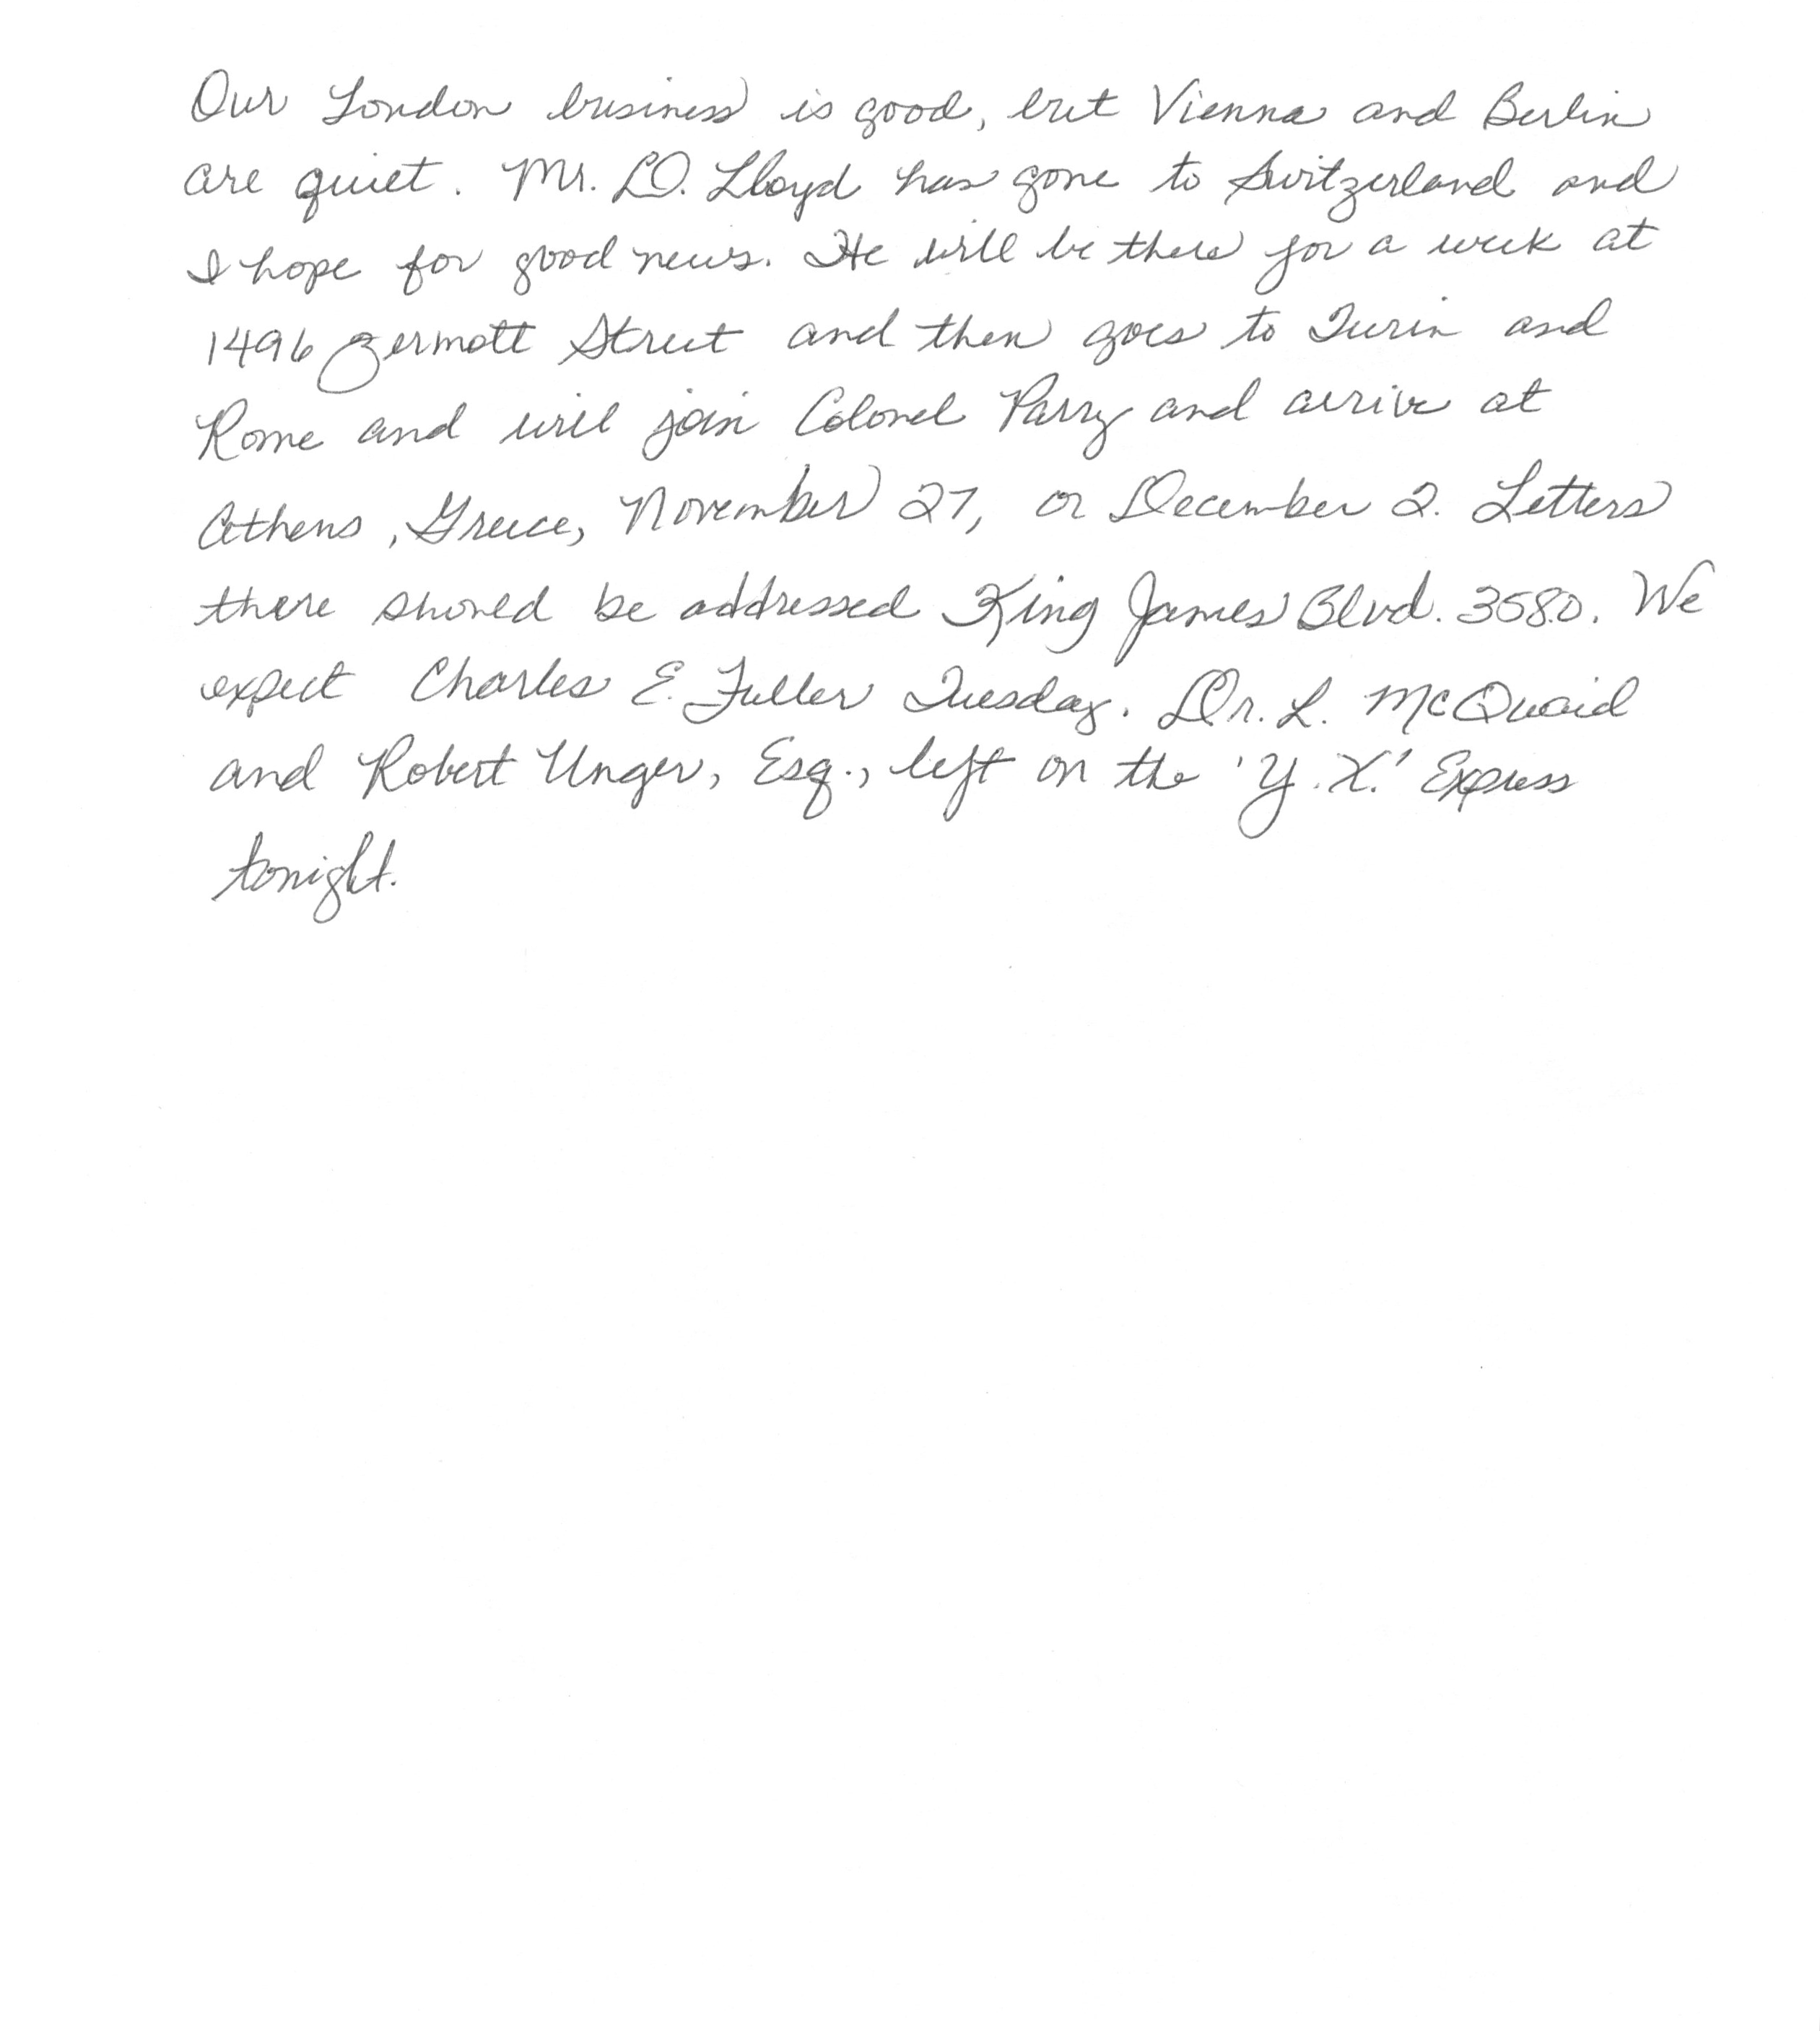 Our London business is good, but Vienna and Berlin
are quiet. Mr. D. Lloyd has gone to Switzerland and
I hope for good news. He will be there for a week at
1496 Zermott Street and then goes to Turin and
Rome and will join Colonel Parry and arrive at
Athens, Greece, November 27, or December 2. Letters
there should be addressed King James Blvd. 3580. We
expect Charles E. Fuller Tuesday. Dr. L. McQuaid
and Robert Unger, Esq., left on the 'Y.X.' Express
tonight.